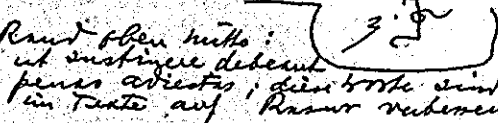 Rand oben mitte:
ut sustinere debeant
penas adiectas; diese Worte sind
im Texte auf Rasur verbessert